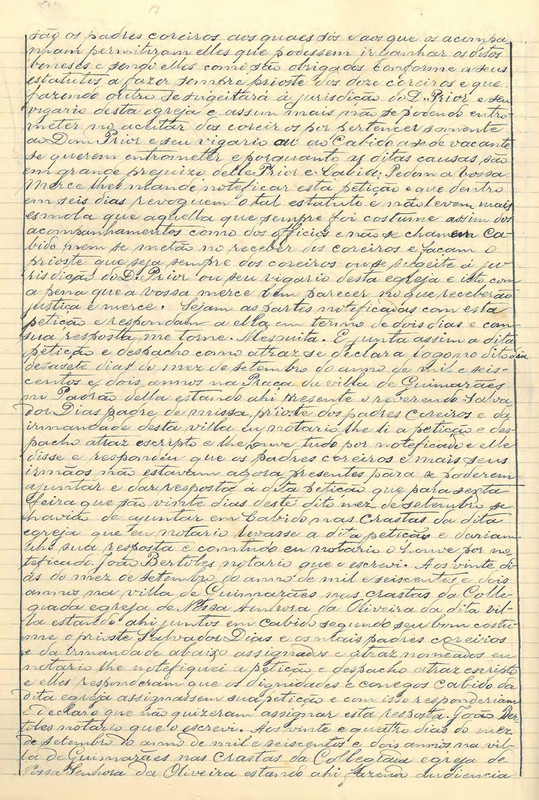 são os padres coreiros aos quaes sós e aos que os acompa
nham permittiram elles que podessem ir ganhar os ditos
beneses e sendo elles comissão obrigados conforme a seus
estatutos a fazer sempre prioste dos doze coreiros e que
fazendo outro se sugeitará á jurisdição do D. Prior e seu
vigario desta egreja e assim mais não se podendo entro
metter no aceitar dos coreiros por pertencer somente
ao Dom Prior e seu vigario ou ao Cabido a sede vacante
se querem entrometter e porquanto as ditas causas são
em grande prejuizo delle Prior e Cabido, Pedem a Vossa
Merce lhe mande notificar esta petição e que dentro
em seis dias revoguem o tal estatuto e não levem mais
esmola que aquella que sempre foi costume assim dos
acompanhamentos como dos officios e não se chamem Ca
bido nem se metão no receber dos coreiros e façam o
prioste que seja sempre dos coreiros ou se sugeite á ju
risdição do D. Prior ou seu vigario desta egreja e isto com
a pena que a vossa merce bem parecer no que receberão
justiça e merce. Sejam as partes notificadas com esta
petição e respondam a ella em termo de dois dias e com
sua resposta me torne. Mesquita. E junta assim a dita
petição e despacho como atraz se declara logo no dito dia
dezasete dias do mez de setembro do anno de mil e seis
centos e dois annos na Praça da villa de Guimarães
no Padrão della estando ahi presente o reverendo Salva
dor Dias padre de missa, prioste dos padres coreiros e da
irmandade desta villa eu notario lhe li a petição e des
pacho atraz escripto e lhe houve tudo por noteficado e elle
disse e respondeu que os padres coreiros e mais seus
irmãos não estavam agora presentes para se poderem
ajuntar e dar resposta á dita petição que para sexta
feira que são vinte dias deste dito mez de setembro se
havia de ajuntar em Cabido nas Crastas da dita
egreja que eu notario levasse a dita petição e dariam
sua resposta e comtudo eu notario o houve por no
teficado. João Bertolez notario que o escrevi. Aos vinte di
as do mez de setembro do anno de mil e seiscentos e dois
annos na villa de Guimarães nas crastas da Colle
giada egreja de Nossa Senhora da Oliveira da dita vil
la estando ahi juntos em cabido segundo seu bom costu
me o prioste Salvador Dias e os mais padres coreiros
e da irmandade abaixo assignados e atraz nomeados eu
notario lhe notefiquei a petição e despacho atraz escripto
e elles responderam que os dignidades e conegos Cabido da
dita egreja assignassem sua petição e com isso responderiam
Declaro que não quizeram assignar esta resposta. João Ber
tolez notario que o escrevi. Aos vinte e quatro dias do mez
de setembro do anno de mil e seiscentos e dois annos na vil
la de Guimarães nas crastas da Collegiada egreja de
Nossa Senhora da Oliveira estando ahi fazendo audiencia